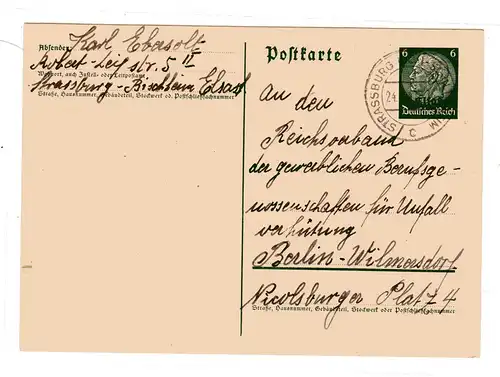 Absender: Karl Ebersolt
Robert-Leis str. 5 II
Wohnort, auch Zustell- oder Leitpostamt
Strassburg-Bischheim Elsass
Straße, Hausnummer, Gebäudeteil, Stockwerk od. Postschließfachnummer
Postkarte
6 6
Deutsches Reich
STRASSBURG
24.
c
An den
Reichsverband
der gewerblichen Berufsge-
nossenschaften für Unfall
verhütung
Berlin-Wilmersdorf
Nicolsburger Platz 4
Straße, Hausnummer, Gebäudeteil, Stockwerk oder Postschließfachnummer